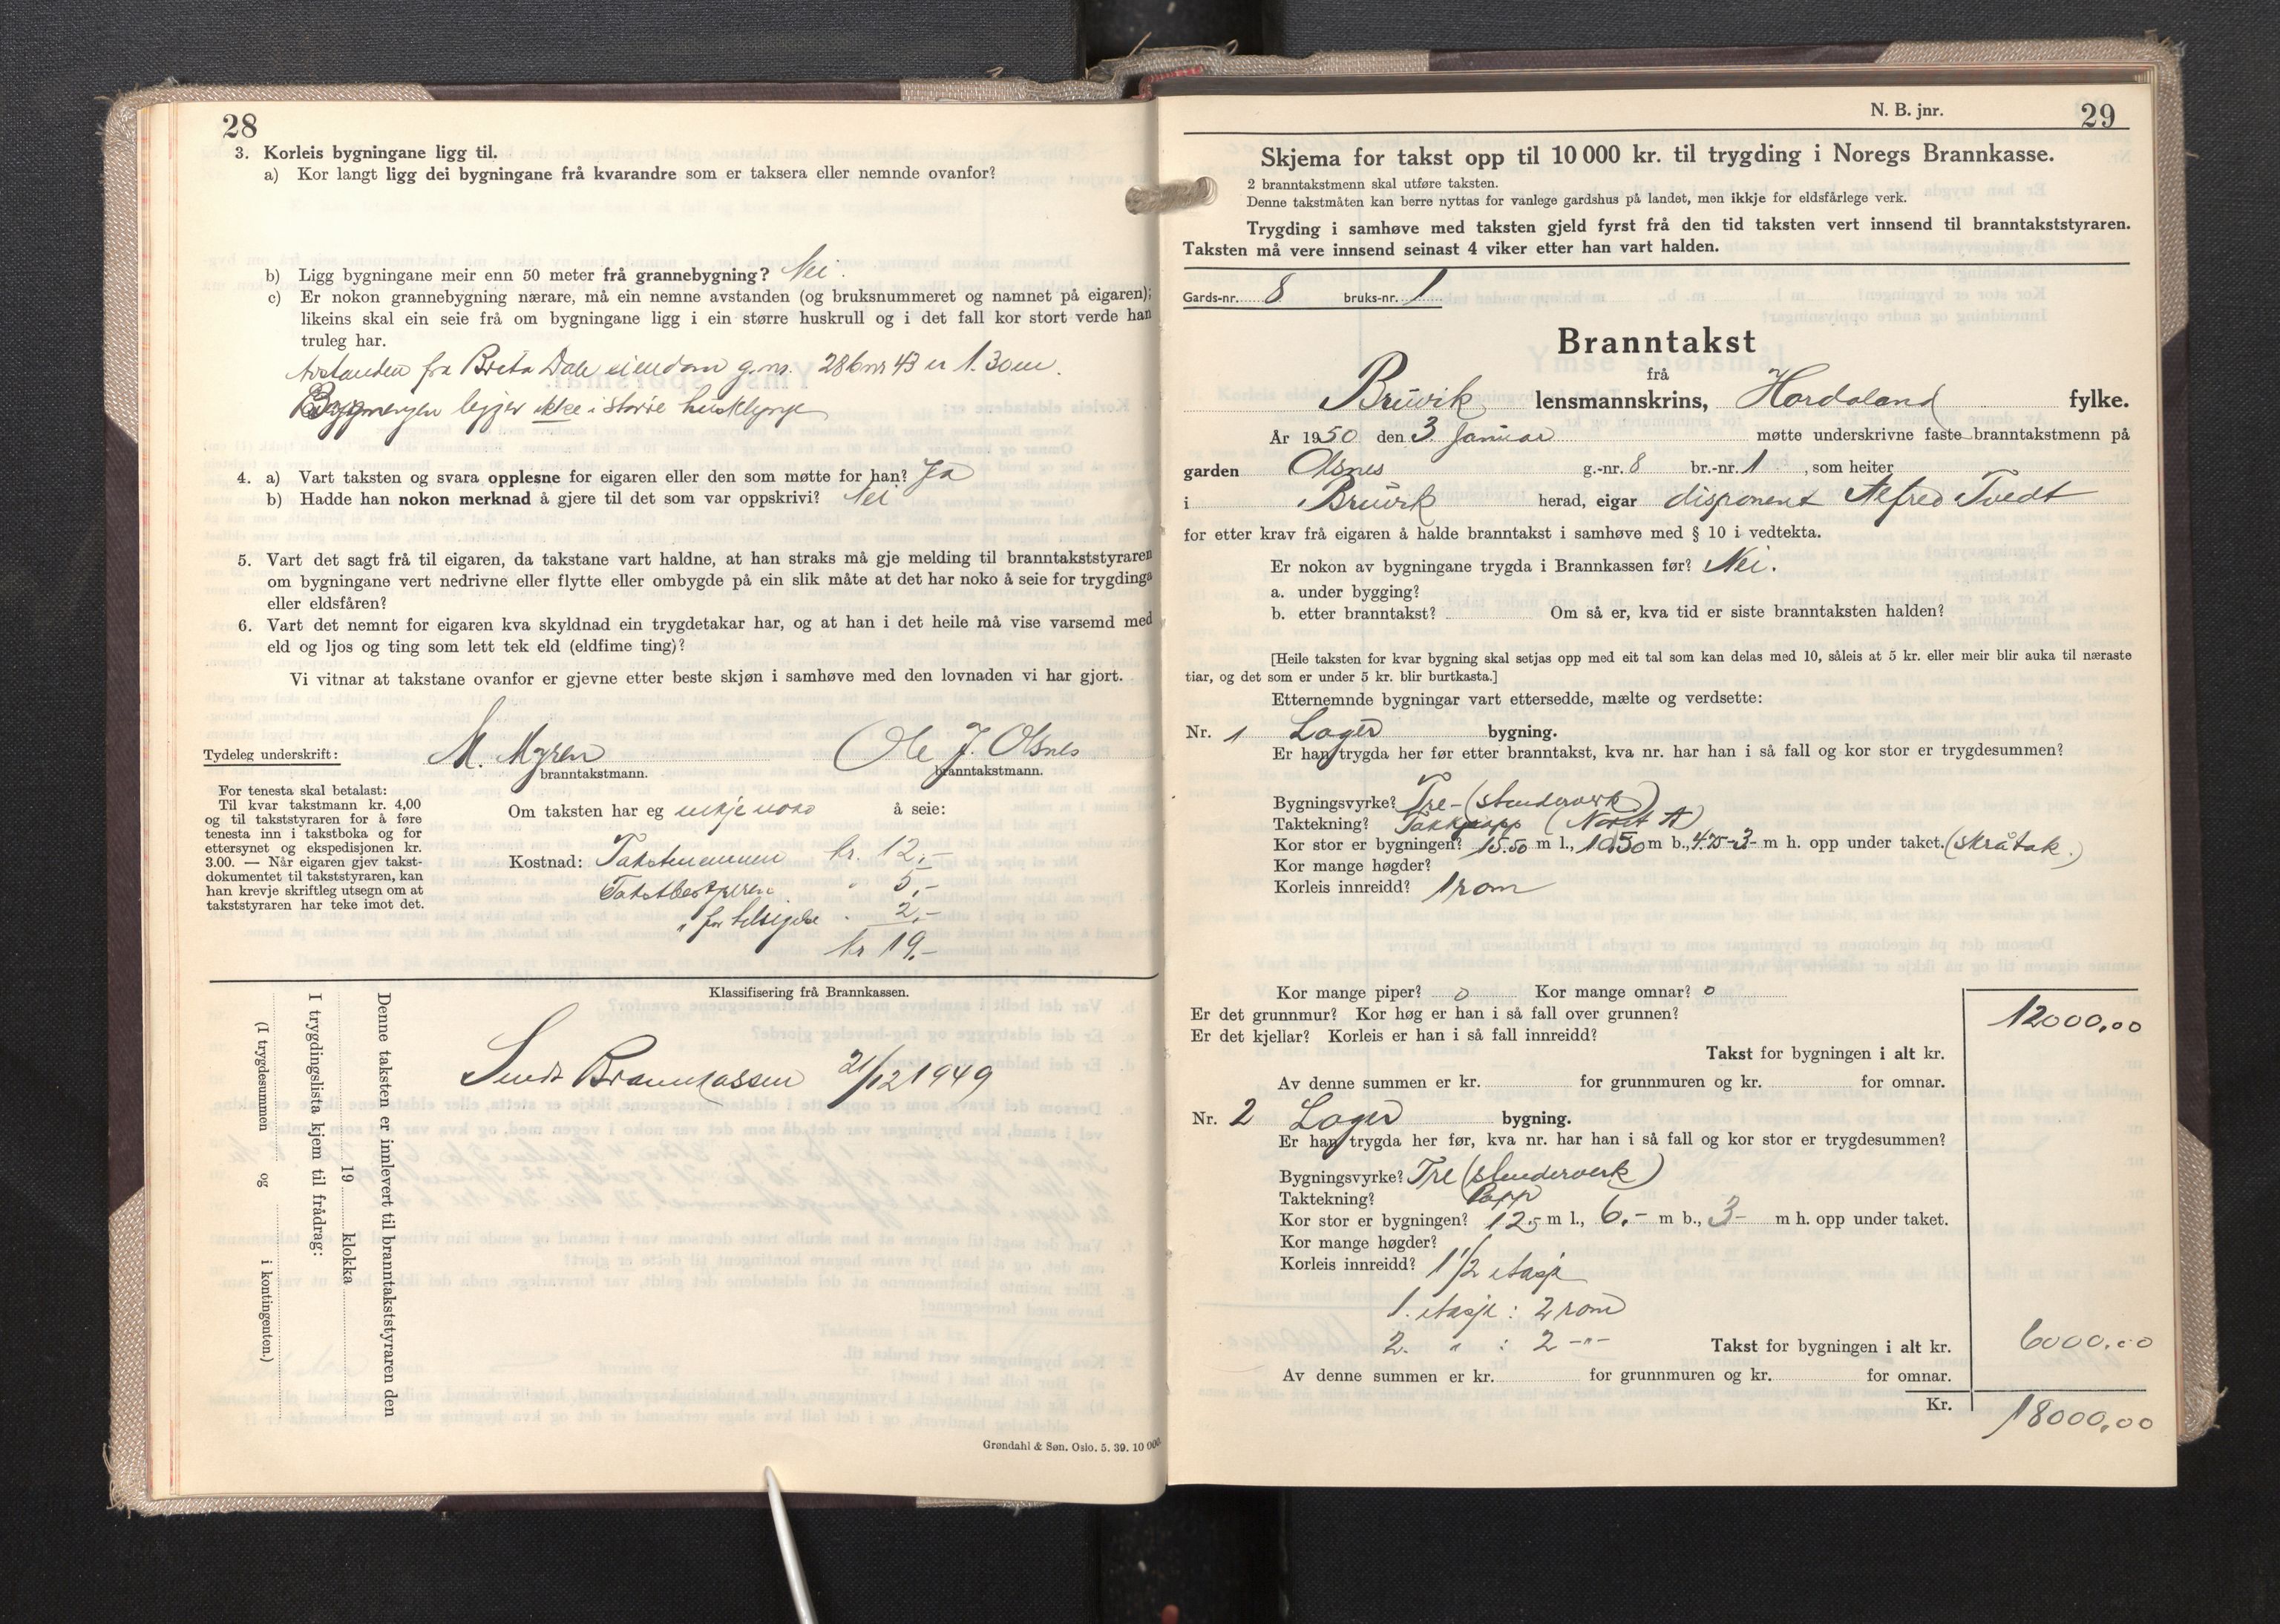 28
3. Korleis bygningane ligg til.
a) Kor langt ligg dei bygningane frå kvarandre som er taksera eller nemnde ovanfor?
b) Ligg bygningane meir enn 50 meter frå grannebygning? Nei.
c) Er nokon grannebygning nærare, må ein nemne avstanden (og bruksnummeret og namnet på eigaren);
likeins skal ein seie frå om bygningane ligg i ein større huskrull og i det fall kor stort verde han
truleg har.
Avstanden fra Brita Dale eiendom g.nr. 28 bnr 43 er 1.30 m.
Bygningen ligger ikke i større husklynge
4. a) Vart taksten og svara opplesne for eigaren eller den som møtte for han? Ja
b) Hadde han nokon merknad å gjere til det som var oppskrivi? Nei
5. Vart det sagt frå til eigaren, da takstane vart haldne, at han straks må gje melding til branntakststyraren
om bygningane vert nedrivne eller flytte eller ombygde på ein slik måte at det har noko å seie for trygdinga
eller eldsfåren?
6. Vart det nemnt for eigaren kva skyldnad ein trygdetakar har, og at han i det heile må vise varsemd med
eld og ljos og ting som lett tek eld (eldfime ting)?
Vi vitnar at takstane ovanfor er gjevne etter beste skjøn i samhøve med den lovnaden vi har gjort.
Tydeleg underskrift: M. Myren Ole J. Olsnes
branntakstmann. branntakstmann.
For tenesta skal betalast:
Til kvar takstmann kr. 4,00
og til takststyraren for å føre
tenesta inn i takstboka og for
ettersynet og ekspedisjonen kr.
3.00. — Når eigaren gjev takst-
dokumentet til takststyraren, kan
han krevje skriftleg utsegn om at
takststyraren har teke imot det.
Om taksten har eg inkje noko å seie:
Kostnad: Takstmennene kr. 12,-
Takstbestyreren " 5,-
" for tilsigelse " 2,-
kr 19,-
Klassifisering frå Brannkassen.
Sendt Brannkassen 21/12 1949
Denne taksten er innlevert til branntakststyraren den
19 klokka
I trygdingslista kjem til frådrag:
(I trygdesummen og i kontingenten.)
Grøndahl & Søn. Oslo. 5. 39. 10 000.
N. B. jnr. 29
Skjema for takst opp til 10 000 kr. til trygding i Noregs Brannkasse.
2 branntakstmenn skal utføre taksten.
Denne takstmåten kan berre nyttas for vanlege gardshus på landet, men ikkje for eldsfårlege verk.
Trygding i samhøve med taksten gjeld fyrst frå den tid taksten vert innsend til branntakststyraren.
Taksten må vere innsend seinast 4 viker etter han vart halden.
Gards-nr. 8 bruks-nr. 1
Branntakst
frå
Bruvik lensmannskrins, Hordaland fylke.
År 1950 den 3. Januar møtte underskrivne faste branntakstmenn på
garden Olsnes g.-nr. 8 br.-nr. 1, som heiter
i Bruvik herad, eigar disponent Alfred Tvedt
for etter krav frå eigaren å halde branntakst i samhøve med § 10 i vedtekta.
Er nokon av bygningane trygda i Brannkassen før? Nei.
a. under bygging?
b. etter branntakst? Om så er, kva tid er siste branntaksten halden?
[Heile taksten for kvar bygning skal setjas opp med eit tal som kan delas med 10, såleis at 5 kr. eller meir blir auka til næraste
tiar, og det som er under 5 kr. blir burtkasta.]
Etternemnde bygningar vart ettersedde, mælte og verdsette:
Nr. 1 Lager bygning.
Er han trygda her før etter branntakst, kva nr. har han i så fall og kor stor er trygdesummen?
Bygningsvyrke? Tre - (stenderverk)
Taktekning? Takpapp
Kor stor er bygningen? 15.50 m l., 10.50 m b., 4.75-3- m h. opp under taket. (skråtak.)
Kor mange høgder?
Korleis innreidd? 1 rom
Kor mange piper? 0 Kor mange omnar? 0
Er det grunnmur? Kor høg er han i så fall over grunnen?
12000,00
Er det kjellar? Korleis er han i så fall innreidd?
Takst for bygningen i alt kr.
Av denne summen er kr. for grunnmuren og kr. for omnar.
Nr. 2 Lager bygning.
Er han trygda her før, kva nr. har han i så fall og kor stor er trygdesummen?
Bygningsvyrke? Tre (stenderverk)
Taktekning? Papp
Kor stor er bygningen? 12.5 m l., 6,- m b., 3- m h. opp under taket.
Kor mange høgder?
Korleis innreidd? 1 1/2 etasje
1. etasje : 2 rom
2. " : 2 -"- Takst for bygningen i alt kr. 6000.00
Av denne summen er kr. for grunnmuren og kr. for omnar.
Kr. 18000,00